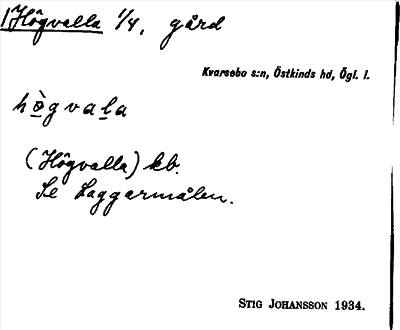 Högvalla 1/4, gård
Kvarsebo s:n, Östkinds hd, Ögl. l.
hògvala
(Högvalla) kb.
Se Laggarmålen.
Stig Johansson 1934.